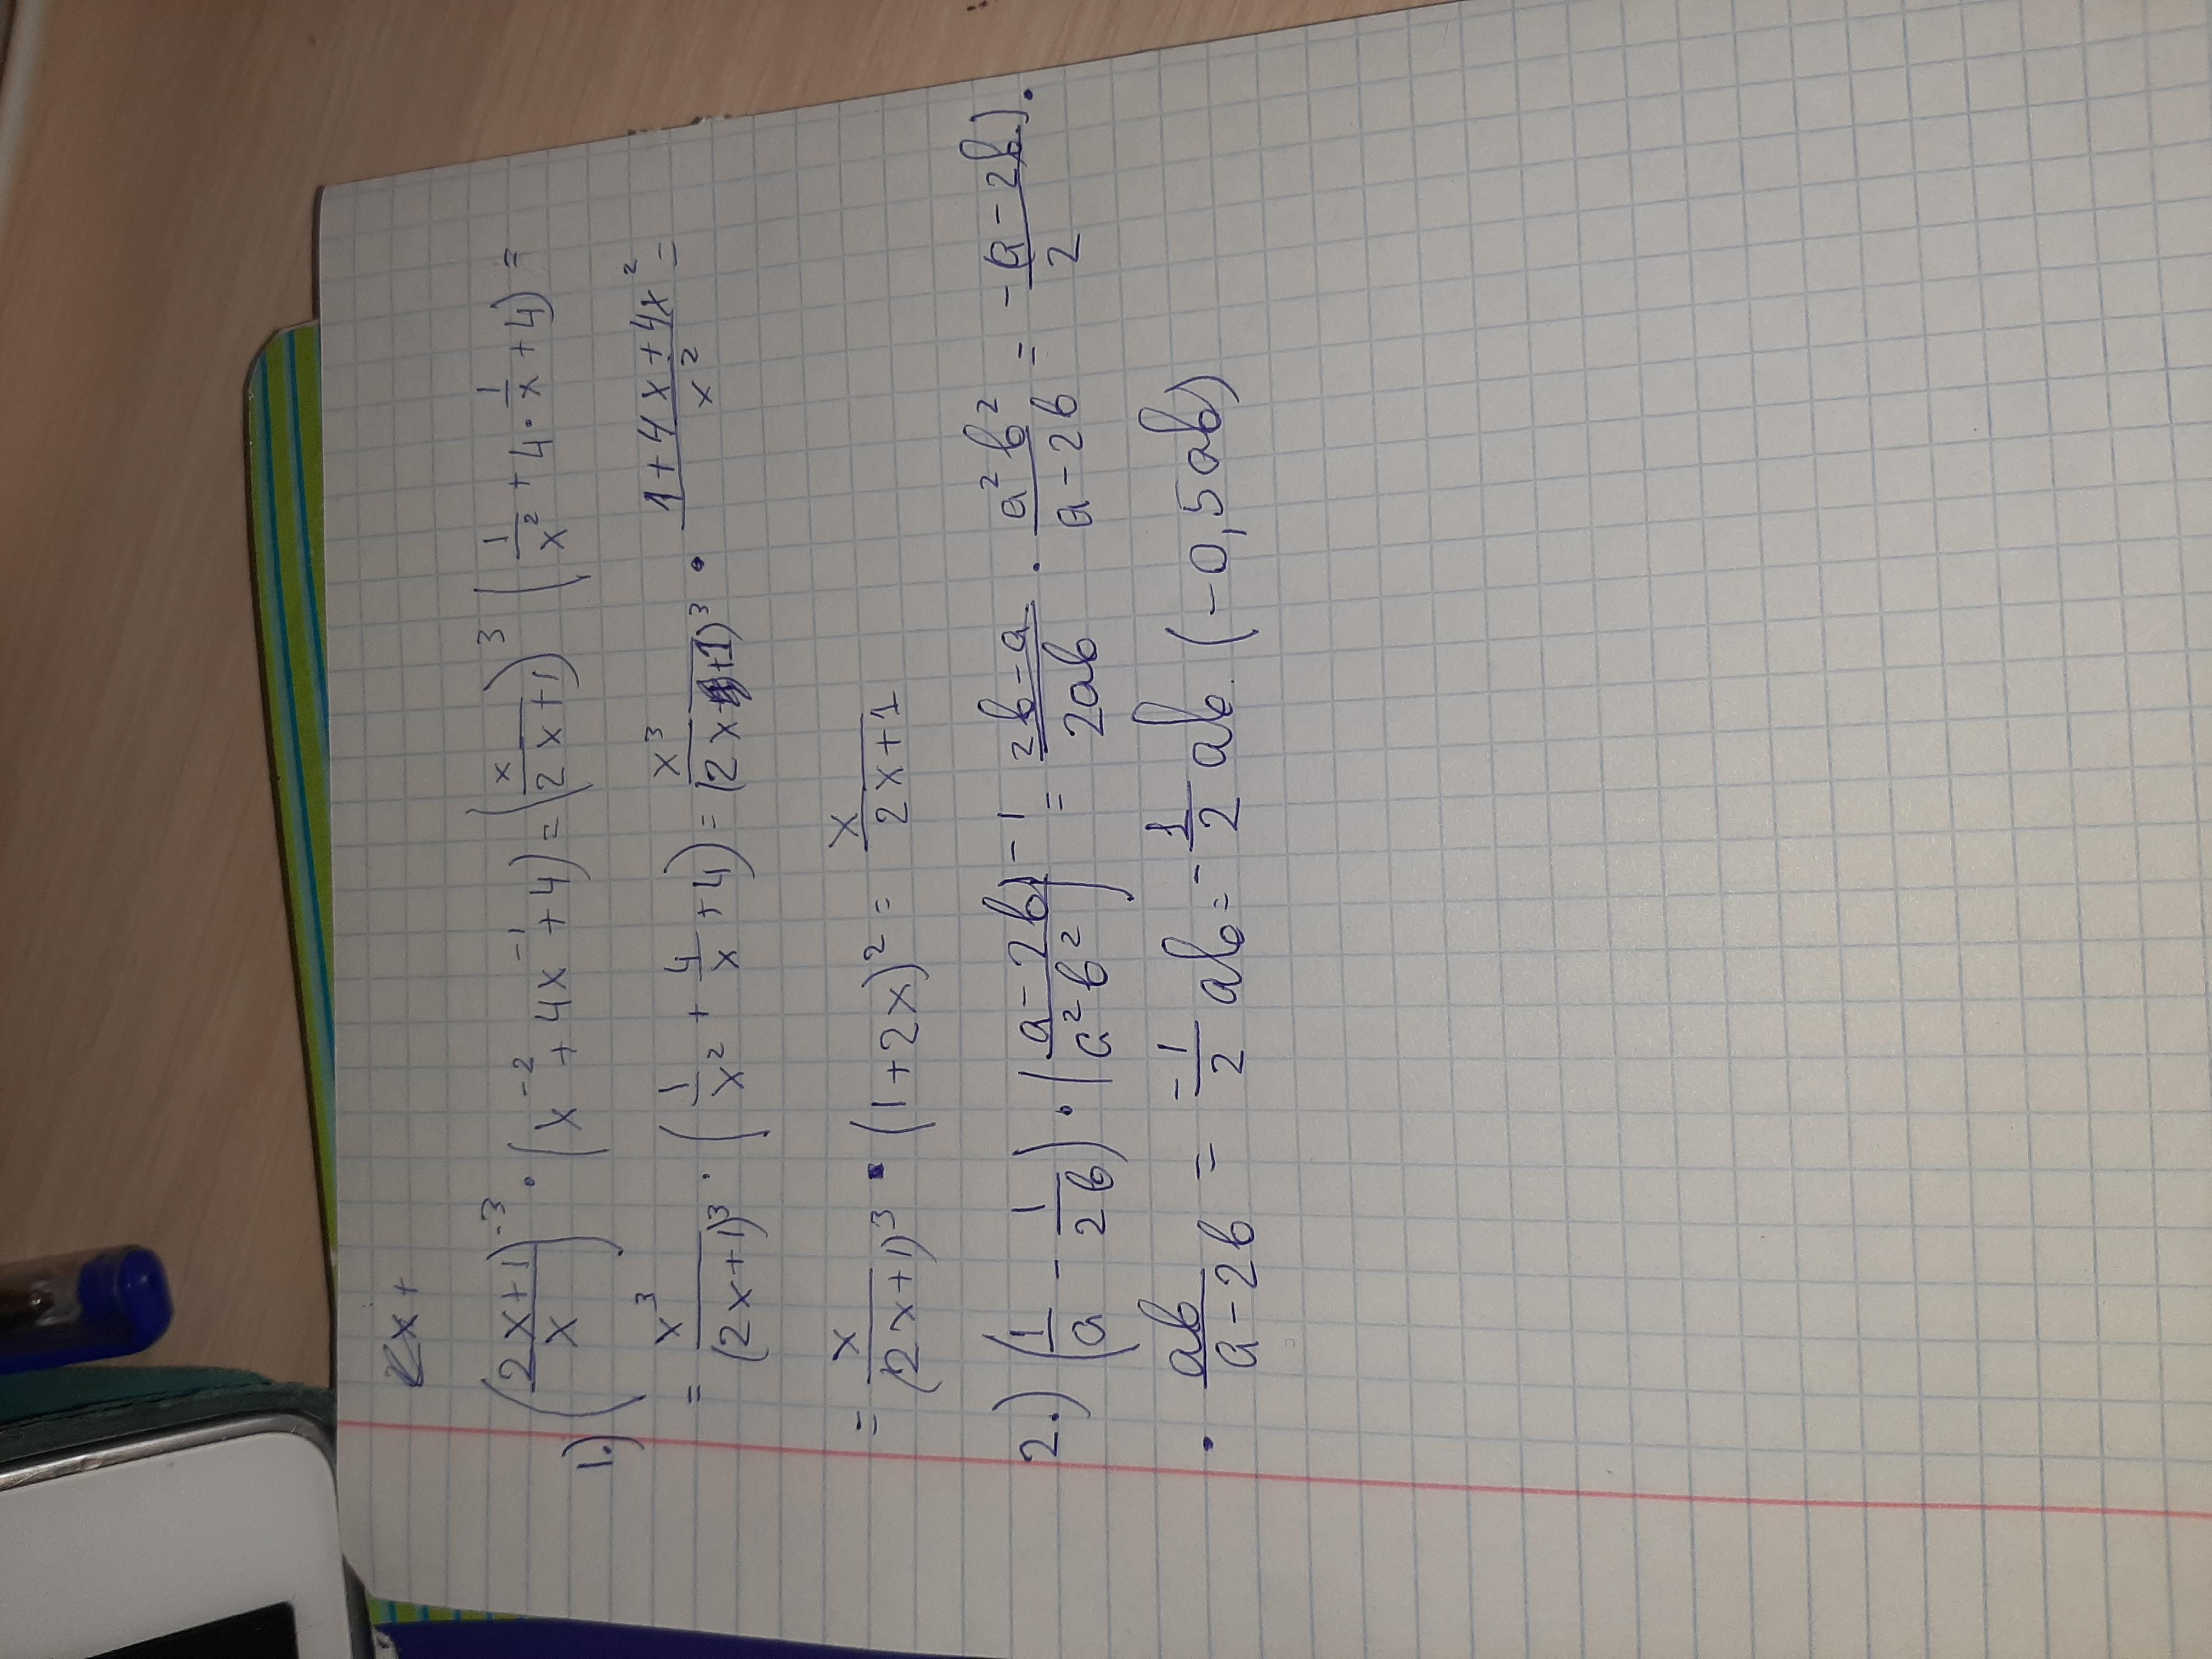 2x+
1.) ((2x+1)/x)^-3 · (x^-2 + 4x^-1 + 4) = (x/(2x+1))^3 (1/x^2 + 4 · 1/x + 4) =
= x^3/(2x+1)^3 · (1/x^2 + 4/x + 4) = x^3/(2x+1)^3 · (1+4x+4x^2)/x^2 =
= x/(2x+1)^3 · (1+2x)^2 = x/(2x+1)
2.) (1/a - 1/2b) · ((a-2b)/(a^2b^2))^-1 = (2b-a)/2ab · a^2b^2/(a-2b) = -(a-2b)/2 ·
· ab/(a-2b) = -1/2 ab = -1/2 ab (-0,5ab)